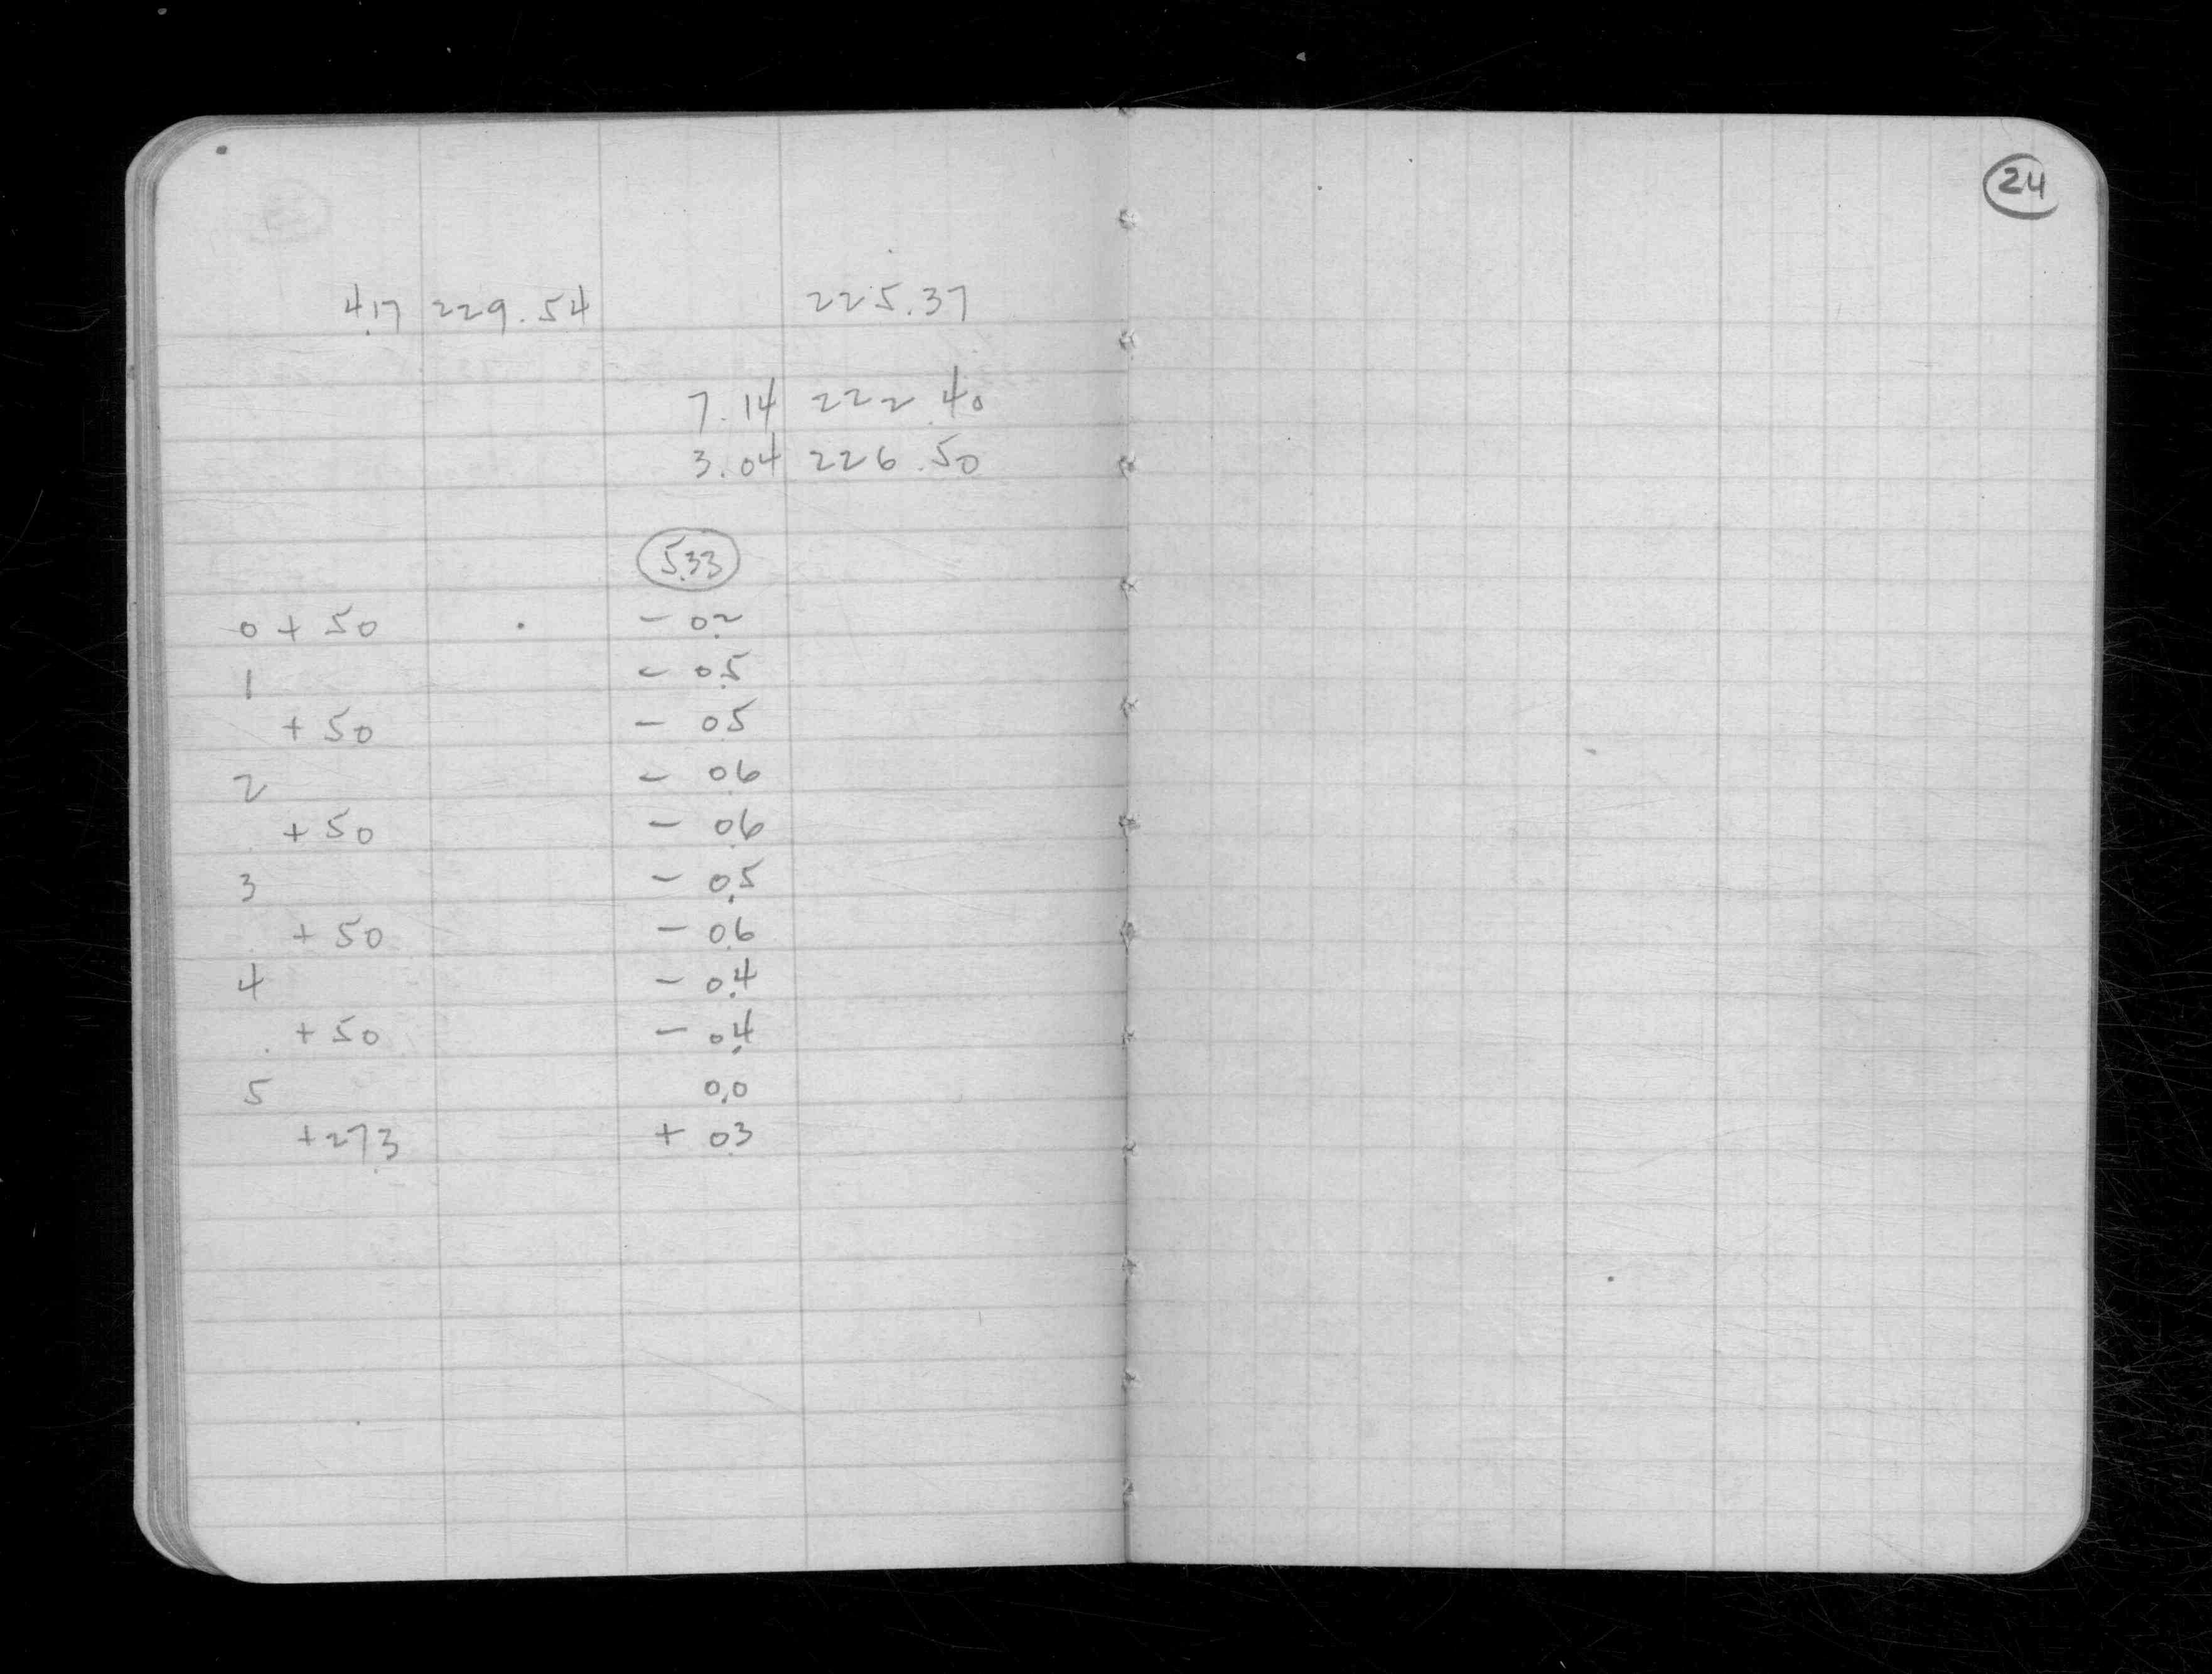 24
4.17 229.54 225.37
7.14 222.40
3.04 226.50
5.33
0 + 50 - 0.2
1 - 0.5
+ 50 - 0.5
2 - 0.6
+ 50 - 0.6
3 - 0.5
+ 50 - 0.6
4 - 0.4
+ 50 - 0.4
5 0.0
+27.3 + 0.3